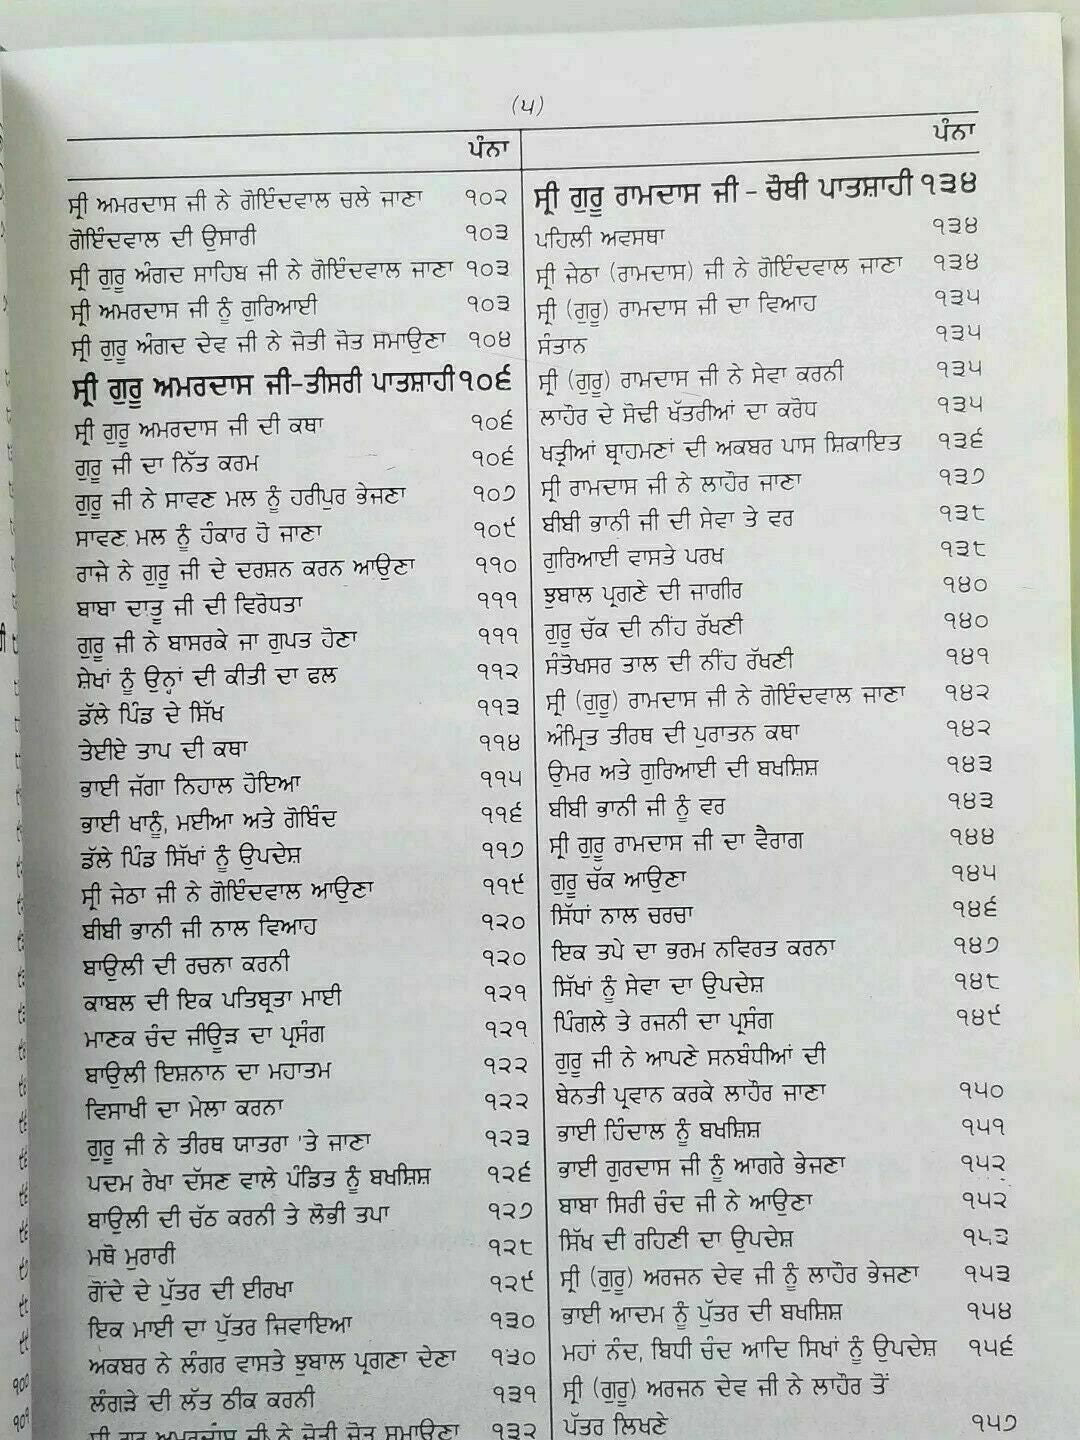 (੫)
ਪੰਨਾ
ਸ੍ਰੀ ਅਮਰਦਾਸ ਜੀ ਨੇ ਗੋਇੰਦਵਾਲ ਚਲੇ ਜਾਣਾ ੧੦੨
ਗੋਇੰਦਵਾਲ ਦੀ ਉਸਾਰੀ ੧੦੩
ਸ੍ਰੀ ਗੁਰੂ ਅੰਗਦ ਸਾਹਿਬ ਜੀ ਨੇ ਗੋਇੰਦਵਾਲ ਜਾਣਾ ੧੦੩
ਸ੍ਰੀ ਅਮਰਦਾਸ ਜੀ ਨੂੰ ਗੁਰਿਆਈ ੧੦੩
ਸ੍ਰੀ ਗੁਰੂ ਅੰਗਦ ਦੇਵ ਜੀ ਨੇ ਜੋਤੀ ਜੋਤ ਸਮਾਉਣਾ ੧੦੪
ਸ੍ਰੀ ਗੁਰੂ ਅਮਰਦਾਸ ਜੀ-ਤੀਸਰੀ ਪਾਤਸ਼ਾਹੀ ੧੦੬
ਸ੍ਰੀ ਗੁਰੂ ਅਮਰਦਾਸ ਜੀ ਦੀ ਕਥਾ ੧੦੬
ਗੁਰੂ ਜੀ ਦਾ ਨਿੱਤ ਕਰਮ ੧੦੬
ਗੁਰੂ ਜੀ ਨੇ ਸਾਵਣ ਮਲ ਨੂੰ ਹਰੀਪੁਰ ਭੇਜਣਾ ੧੦੭
ਸਾਵਣ ਮਲ ਨੂੰ ਹੰਕਾਰ ਹੋ ਜਾਣਾ ੧੦੯
ਰਾਜੇ ਨੇ ਗੁਰੂ ਜੀ ਦੇ ਦਰਸ਼ਨ ਕਰਨ ਆਉਣਾ ੧੧੦
ਬਾਬਾ ਦਾਤੂ ਜੀ ਦੀ ਵਿਰੋਧਤਾ ੧੧੧
ਗੁਰੂ ਜੀ ਨੇ ਬਾਸਰਕੇ ਜਾ ਗੁਪਤ ਹੋਣਾ ੧੧੧
ਸ਼ੇਖਾਂ ਨੂੰ ਉਨ੍ਹਾਂ ਦੀ ਕੀਤੀ ਦਾ ਫਲ ੧੧੨
ਡੱਲੇ ਪਿੰਡ ਦੇ ਸਿੱਖ ੧੧੩
ਤੇਈਏ ਤਾਪ ਦੀ ਕਥਾ ੧੧੪
ਭਾਈ ਜੱਗਾ ਨਿਹਾਲ ਹੋਇਆ ੧੧੫
ਭਾਈ ਖਾਨੂੰ, ਮਈਆ ਅਤੇ ਗੋਬਿੰਦ ੧੧੬
ਡੱਲੇ ਪਿੰਡ ਸਿੱਖਾਂ ਨੂੰ ਉਪਦੇਸ਼ ੧੧੭
ਸ੍ਰੀ ਜੇਠਾ ਜੀ ਨੇ ਗੋਇੰਦਵਾਲ ਆਉਣਾ ੧੧੯
ਬੀਬੀ ਭਾਨੀ ਜੀ ਨਾਲ ਵਿਆਹ ੧੨੦
ਬਾਉਲੀ ਦੀ ਰਚਨਾ ਕਰਨੀ ੧੨੦
ਕਾਬਲ ਦੀ ਇਕ ਪਤਿਬ੍ਰਤਾ ਮਾਈ ੧੨੧
ਮਾਣਕ ਚੰਦ ਜੀਊੜ ਦਾ ਪ੍ਰਸੰਗ ੧੨੧
ਬਾਉਲੀ ਇਸ਼ਨਾਨ ਦਾ ਮਹਾਤਮ ੧੨੨
ਵਿਸਾਖੀ ਦਾ ਮੇਲਾ ਕਰਨਾ ੧੨੨
ਗੁਰੂ ਜੀ ਨੇ ਤੀਰਥ ਯਾਤਰਾ 'ਤੇ ਜਾਣਾ ੧੨੩
ਪਦਮ ਰੇਖਾ ਦੱਸਣ ਵਾਲੇ ਪੰਡਿਤ ਨੂੰ ਬਖਸ਼ਿਸ਼ ੧੨੬
ਬਾਉਲੀ ਦੀ ਚੱਠ ਕਰਨੀ ਤੇ ਲੋਭੀ ਤਪਾ ੧੨੭
ਮਥੋ ਮੁਰਾਰੀ ੧੨੮
ਗੋਂਦੇ ਦੇ ਪੁੱਤਰ ਦੀ ਈਰਖਾ ੧੨੯
ਇਕ ਮਾਈ ਦਾ ਪੁੱਤਰ ਜਿਵਾਇਆ ੧੩੦
ਅਕਬਰ ਨੇ ਲੰਗਰ ਵਾਸਤੇ ਝੁਬਾਲ ਪ੍ਰਗਣਾ ਦੇਣਾ ੧੩੦
ਲੰਗੜੇ ਦੀ ਲੱਤ ਠੀਕ ਕਰਨੀ ੧੩੧
ਸ੍ਰੀ ਗੁਰੂ ਅਮਰਦਾਸ ਜੀ ਨੇ ਜੋਤੀ ਜੋਤ ਸਮਾਉਣਾ ੧੩੨
ਪੰਨਾ
ਸ੍ਰੀ ਗੁਰੂ ਰਾਮਦਾਸ ਜੀ - ਚੌਥੀ ਪਾਤਸ਼ਾਹੀ ੧੩੪
ਪਹਿਲੀ ਅਵਸਥਾ ੧੩੪
ਸ੍ਰੀ ਜੇਠਾ (ਰਾਮਦਾਸ) ਜੀ ਨੇ ਗੋਇੰਦਵਾਲ ਜਾਣਾ ੧੩੪
ਸ੍ਰੀ (ਗੁਰੂ) ਰਾਮਦਾਸ ਜੀ ਦਾ ਵਿਆਹ ੧੩੫
ਸੰਤਾਨ ੧੩੫
ਸ੍ਰੀ (ਗੁਰੂ) ਰਾਮਦਾਸ ਜੀ ਨੇ ਸੇਵਾ ਕਰਨੀ ੧੩੫
ਲਾਹੌਰ ਦੇ ਸੋਢੀ ਖੱਤਰੀਆਂ ਦਾ ਕਰੋਧ ੧੩੫
ਖਤ੍ਰੀਆਂ ਬ੍ਰਾਹਮਣਾਂ ਦੀ ਅਕਬਰ ਪਾਸ ਸ਼ਿਕਾਇਤ ੧੩੬
ਸ੍ਰੀ ਰਾਮਦਾਸ ਜੀ ਨੇ ਲਾਹੌਰ ਜਾਣਾ ੧੩੭
ਬੀਬੀ ਭਾਨੀ ਜੀ ਦੀ ਸੇਵਾ ਤੇ ਵਰ ੧੩੮
ਗੁਰਿਆਈ ਵਾਸਤੇ ਪਰਖ ੧੩੮
ਝੁਬਾਲ ਪ੍ਰਗਣੇ ਦੀ ਜਾਗੀਰ ੧੪੦
ਗੁਰੂ ਚੱਕ ਦੀ ਨੀਂਹ ਰੱਖਣੀ ੧੪੦
ਸੰਤੋਖਸਰ ਤਾਲ ਦੀ ਨੀਂਹ ਰੱਖਣੀ ੧੪੧
ਸ੍ਰੀ (ਗੁਰੂ) ਰਾਮਦਾਸ ਜੀ ਨੇ ਗੋਇੰਦਵਾਲ ਜਾਣਾ ੧੪੨
ਅੰਮ੍ਰਿਤ ਤੀਰਥ ਦੀ ਪੁਰਾਤਨ ਕਥਾ ੧੪੨
ਉਮਰ ਅਤੇ ਗੁਰਿਆਈ ਦੀ ਬਖਸ਼ਿਸ਼ ੧੪੩
ਬੀਬੀ ਭਾਨੀ ਜੀ ਨੂੰ ਵਰ ੧੪੩
ਸ੍ਰੀ ਗੁਰੂ ਰਾਮਦਾਸ ਜੀ ਦਾ ਵੈਰਾਗ ੧੪੪
ਗੁਰੂ ਚੱਕ ਆਉਣਾ ੧੪੫
ਸਿੱਧਾਂ ਨਾਲ ਚਰਚਾ ੧੪੬
ਇਕ ਤਪੇ ਦਾ ਭਰਮ ਨਵਿਰਤ ਕਰਨਾ ੧੪੭
ਸਿੱਖਾਂ ਨੂੰ ਸੇਵਾ ਦਾ ਉਪਦੇਸ਼ ੧੪੮
ਪਿੰਗਲੇ ਤੇ ਰਜਨੀ ਦਾ ਪ੍ਰਸੰਗ ੧੪੯
ਗੁਰੂ ਜੀ ਨੇ ਆਪਣੇ ਸਨਬੰਧੀਆਂ ਦੀ
ਬੇਨਤੀ ਪ੍ਰਵਾਨ ਕਰਕੇ ਲਾਹੌਰ ਜਾਣਾ ੧੫੦
ਭਾਈ ਹਿੰਦਾਲ ਨੂੰ ਬਖਸ਼ਿਸ਼ ੧੫੧
ਭਾਈ ਗੁਰਦਾਸ ਜੀ ਨੂੰ ਆਗਰੇ ਭੇਜਣਾ ੧੫੨
ਬਾਬਾ ਸਿਰੀ ਚੰਦ ਜੀ ਨੇ ਆਉਣਾ ੧੫੨
ਸਿੱਖ ਦੀ ਰਹਿਣੀ ਦਾ ਉਪਦੇਸ਼ ੧੫੩
ਸ੍ਰੀ (ਗੁਰੂ) ਅਰਜਨ ਦੇਵ ਜੀ ਨੂੰ ਲਾਹੌਰ ਭੇਜਣਾ ੧੫੩
ਭਾਈ ਆਦਮ ਨੂੰ ਪੁੱਤਰ ਦੀ ਬਖਸ਼ਿਸ਼ ੧੫੪
ਮਹਾਂ ਨੰਦ, ਬਿਧੀ ਚੰਦ ਆਦਿ ਸਿਖਾਂ ਨੂੰ ਉਪਦੇਸ਼ ੧੫੬
ਸ੍ਰੀ (ਗੁਰੂ) ਅਰਜਨ ਦੇਵ ਜੀ ਨੇ ਲਾਹੌਰ ਤੋਂ
ਪੱਤਰ ਲਿਖਣੇ ੧੫੭